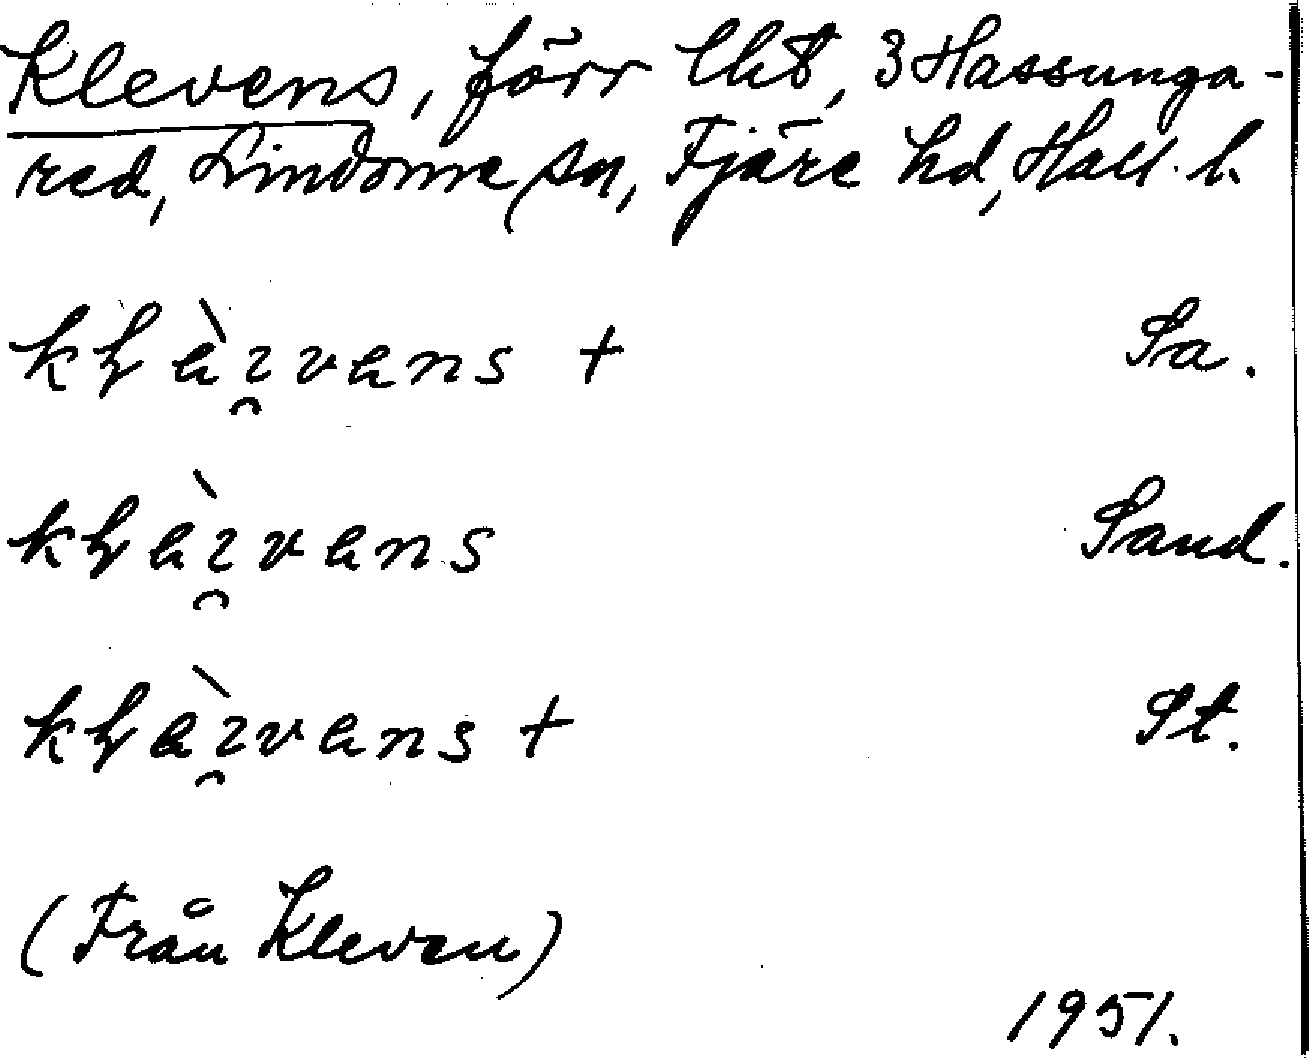 Klevens, förr lht, 3 Hassunga-
red, Lindome sn, Fjäre hd, Hall. l.
kɫàɪ̯vans + Sa.
kɫàɪ̯vans Sand.
kɫàɪ̯vans + St.
(Från Kleven)
1951.